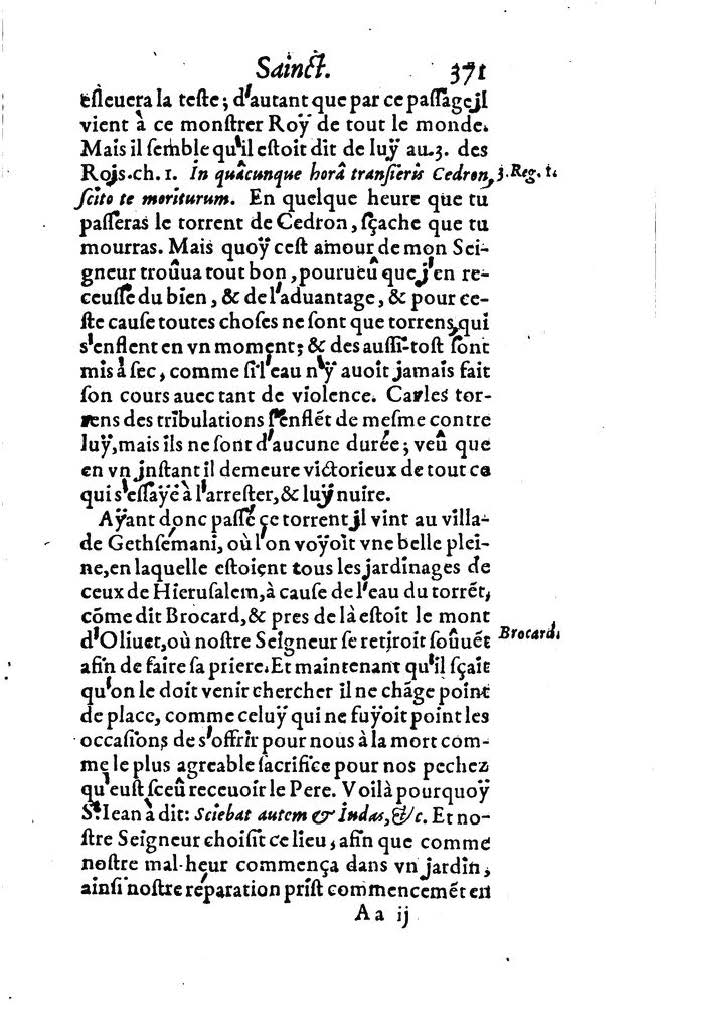 Sainct. 371
esleuera la teste; d'autant que par ce passage jl
vient à ce monstrer Roÿ de tout le monde.
Mais il semble qu'il estoit dit de luÿ au.3. des
Rojs.ch. 1. In quâcunque horâ transieris Cedron, 3. Reg. 1.
scito te moriturum. En quelque heure que tu
passeras le torrent de Cedron, sçache que tu
mourras. Mais quoÿ cest amour de mon Sei-
gneur troûua tout bon, pourueû que j'en re-
ceusse du bien, & de l'aduantage, & pour ce-
ste cause toutes choses ne sont que torrens, qui
s'enflent en vn moment; & des aussi-tost sont
mis à sec, comme si l'eau n'ÿ auoit jamais fait
son cours auec tant de violence. Car les tor-
rens des tribulations s'enflẽt de mesme contre
luÿ, mais ils ne sont d'aucune durée; veû que
en vn jnstant il demeure victorieux de tout ce
qui s'essaÿe à l'arrester, & luÿ nuire.
Aÿant donc passé ce torrent jl vint au villa-
de Gethsemani, où l'on voÿoit vne belle plei-
ne, en laquelle estoient tous les jardinages de
ceux de Hierusalem, à cause de l'eau du torrẽt,
cõme dit Brocard, & pres de là estoit le mont
d'Oliuet, où nostre Seigneur se retjroit soûuẽt Brocard.
afin de faire sa priere. Et maintenant qu'il sçait
qu'on le doit venir chercher il ne chãge point
de place, comme celuÿ qui ne fuÿoit point les
occasions de s'offrir pour nous à la mort com-
me le plus agreable sacrifice pour nos pechez
qu'eust sceû receuoir le Pere. Voilà pourquoÿ
S. Iean à dit: Sciebat autem & Indas, &c. Et no-
stre Seigneur choisit ce lieu, afin que comme
nostre mal-heur commença dans vn jardin,
ainsi nostre réparation prist commencemẽt en
A a ij